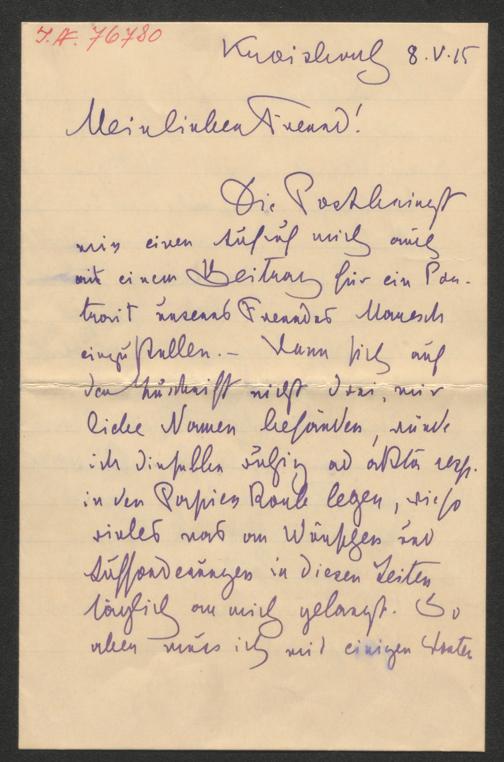 I.N. 76780
8.V.15
Mein lieber Freund!
Die Post bringt
mir einen Aufruf mich auch
mit einem Beitrag für ein Por-
trait unseres Freundes Maresch
einzustellen. – Wenn sich auf
der Zuschrift nicht drei, mir
liebe Namen befänden, würde
ich dieselbe ruhig ad acta resp.
in den Papier Korb legen, wie so
vieles was an Wünschen und
Aufforderungen in diesen Zeiten
täglich an mich gelangt. So
aber muss ich mit einigen Worten